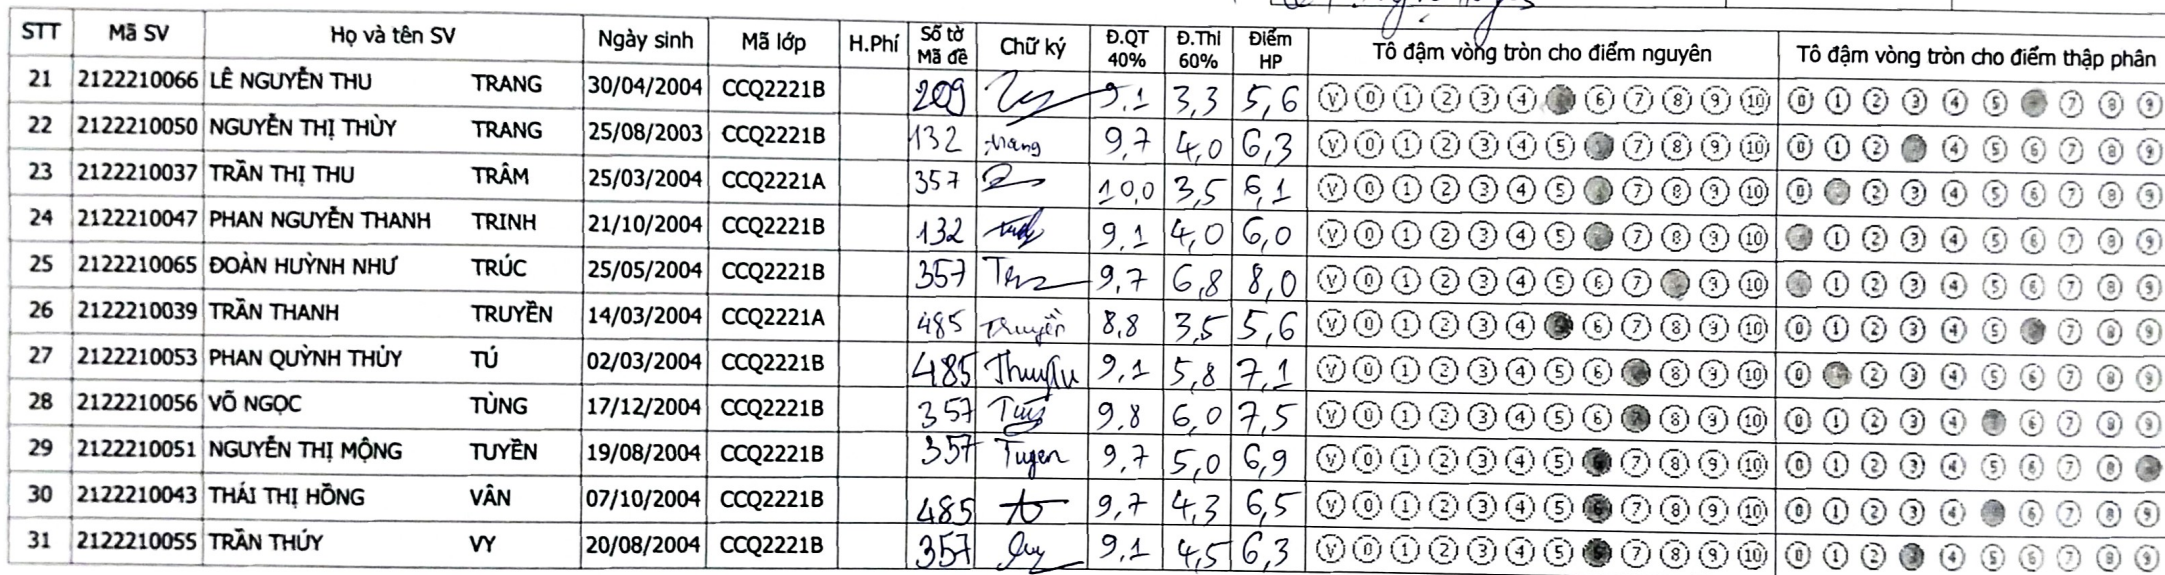 STT Mã SV Họ và tên SV Ngày sinh Mã lớp H.Phí Số tờ Mã đề Chữ ký Đ.QT 40% Đ.Thi 60% Điểm HP Tô đậm vòng tròn cho điểm nguyên Tô đậm vòng tròn cho điểm thập phân
21 2122210066 LÊ NGUYỄN THU TRANG 30/04/2004 CCQ2221B 209 9,1 3,3 5,6 V 0 1 2 3 4 6 7 8 9 10 0 1 2 3 4 5 7 8 9
22 2122210050 NGUYỄN THỊ THÙY TRANG 25/08/2003 CCQ2221B 132 trang 9,7 4,0 6,3 V 0 1 2 3 4 5 7 8 9 10 0 1 2 4 5 6 7 8 9
23 2122210037 TRẦN THỊ THU TRÂM 25/03/2004 CCQ2221A 357 10,0 3,5 6,1 V 0 1 2 3 4 5 7 8 9 10 0 2 3 4 5 6 7 8 9
24 2122210047 PHAN NGUYỄN THANH TRINH 21/10/2004 CCQ2221B 132 9,1 4,0 6,0 V 0 1 2 3 4 5 7 8 9 10 1 2 3 4 5 6 7 8 9
25 2122210065 ĐOÀN HUỲNH NHƯ TRÚC 25/05/2004 CCQ2221B 357 9,7 6,8 8,0 V 0 1 2 3 4 5 6 7 9 10 1 2 3 4 5 6 7 8 9
26 2122210039 TRẦN THANH TRUYỀN 14/03/2004 CCQ2221A 485 Truyền 8,8 3,5 5,6 V 0 1 2 3 4 6 7 8 9 10 0 1 2 3 4 5 7 8 9
27 2122210053 PHAN QUỲNH THÙY TÚ 02/03/2004 CCQ2221B 485 9,1 5,8 7,1 V 0 1 2 3 4 5 6 8 9 10 0 2 3 4 5 6 7 8 9
28 2122210056 VÕ NGỌC TÙNG 17/12/2004 CCQ2221B 357 9,8 6,0 7,5 V 0 1 2 3 4 5 6 8 9 10 0 1 2 3 4 6 7 8 9
29 2122210051 NGUYỄN THỊ MỘNG TUYỀN 19/08/2004 CCQ2221B 357 Tuyen 9,7 5,0 6,9 V 0 1 2 3 4 5 7 8 9 10 0 1 2 3 4 5 6 7 8
30 2122210043 THÁI THỊ HỒNG VÂN 07/10/2004 CCQ2221B 485 9,7 4,3 6,5 V 0 1 2 3 4 5 7 8 9 10 0 1 2 3 4 6 7 8 9
31 2122210055 TRẦN THÚY VY 20/08/2004 CCQ2221B 357 9,1 4,5 6,3 V 0 1 2 3 4 5 7 8 9 10 0 1 2 4 5 6 7 8 9